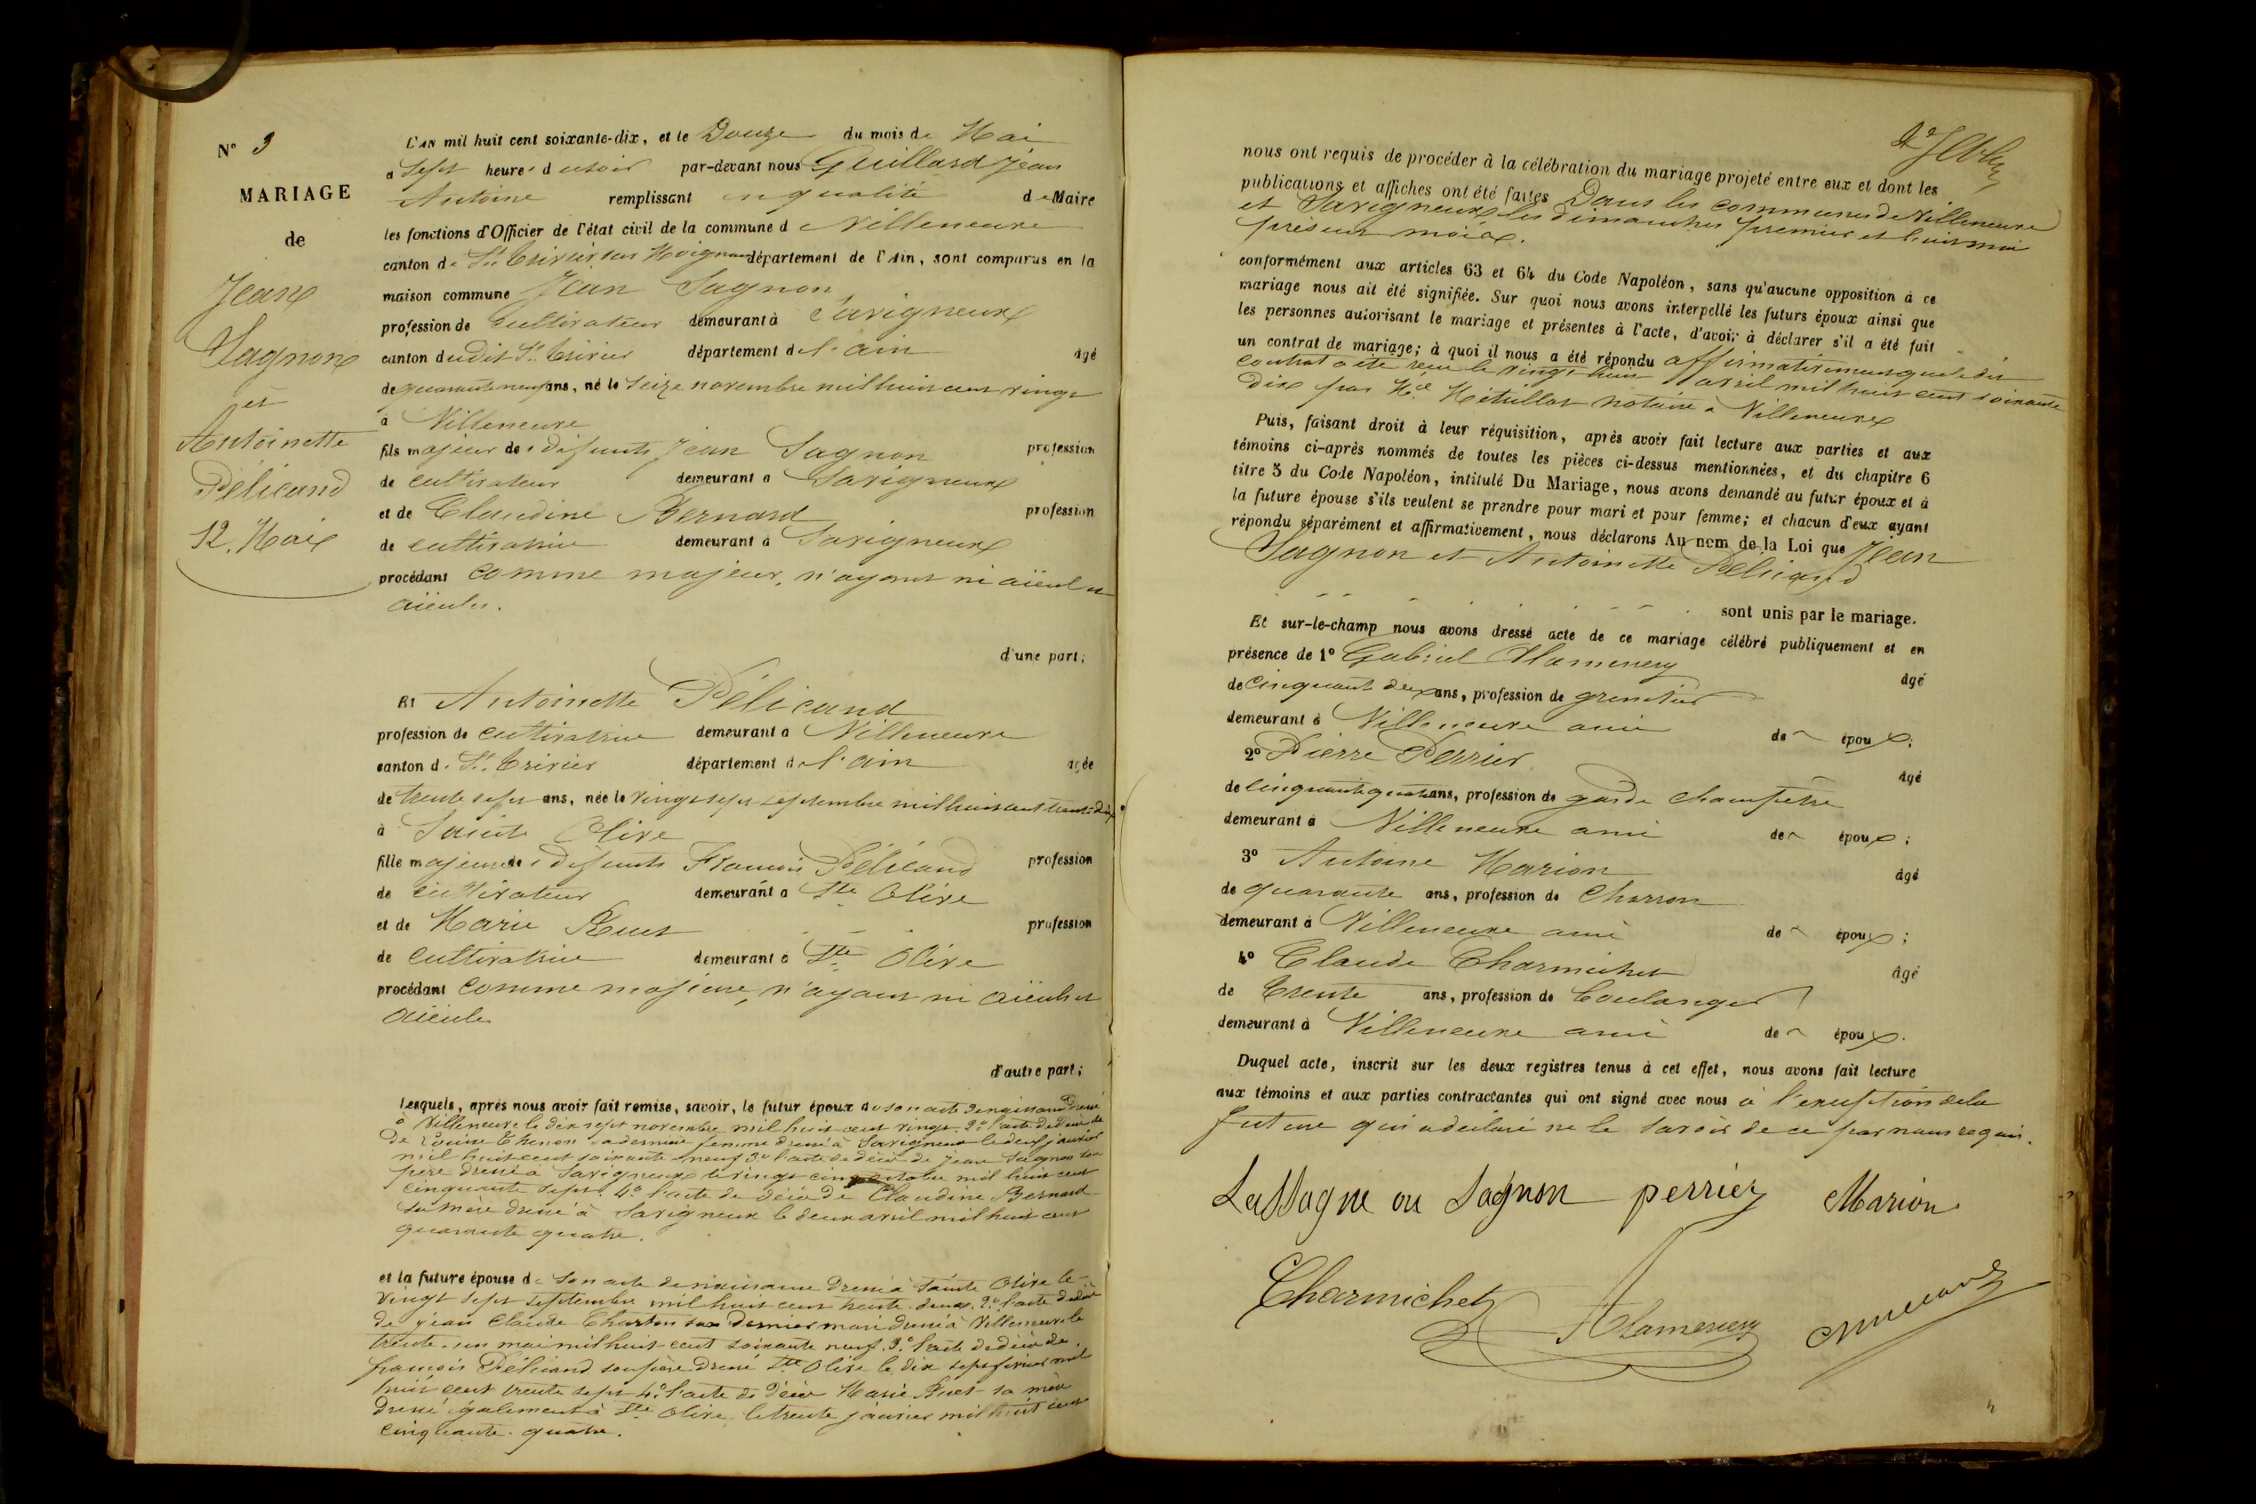 N° 9
MARIAGE
de
Jean
Sagnon
et
Antoinette
Pélicand
12. Mai
L'AN mil huit cent soixante-dix, et le Douze du mois de Mai
à Sept heures du soir par-devant nous Guillard Jean
Antoine remplissant en qualité de Maire
les fonctions d'Officier de l'état civil de la commune de Villeneuve
canton de St. Trivier sur Moignans département de l'Ain, sont comparus en la
maison commune Jean Sagnon
profession de cultivateur demeurant à Savigneux
canton dudit St. Trivier département de l'ain âgé
de quarante neuf ans, né le Seize novembre mil huit cent vingt
à Villeneuve
fils majeur de défunts Jean Sagnon profession
de cultivateur demeurant à Savigneux
et de Claudine Bernard profession
de cultivatrice demeurant à Savigneux
procédant comme majeur, n'ayant ni aïeul ni
aïeules.
d'une part;
Et Antoinette Pélicand
profession de cultivatrice demeurant à Villeneuve
canton de St. Trivier département de l'ain âgée
de trente sept ans, née le vingt sept septembre mil huit cent trente deux
à Sainte Olive
fille majeure de défunts François Pélicand profession
de cultivateur demeurant à Ste Olive
et de Marie Buet profession
de cultivatrice demeurant à Ste Olive
procédant comme majeure, n'ayant ni aïeul et
aïeule
d'autre part;
Lesquels, après nous avoir fait remise, savoir, le futur époux de son acte de naissance dressé
à Villeneuve le dix sept novembre mil huit cent vingt. 2° l'acte de décès de
de Louise Thenon sa dernière femme dressé à Savigneux le deux janvier
mil huit cent soixante neuf 3° l'acte de décès de Jean Sagnon son
père dressé à Savigneux le vingt cinq octobre mil huit cent
cinquante sept. 4° l'acte de décès de Claudine Bernard
sa mère dressé à Savigneux le deux avril mil huit cent
quarante quatre.
et la future épouse de son acte de naissance dressé à Sainte Olive le
vingt sept septembre mil huit cent trente deux. 2° l'acte de décès
de Jean Claude Charton son dernier mari dressé à Villeneuve le
trente un mai mil huit cent soixante neuf. 3° l'acte de décès de
françois Pélicand son père dressé Ste Olive le dix sept février mil
huit cent trente sept 4° l'acte de décès Marie Buet sa mère
dressé également à Ste Olive le trente janvier mil huit cent
cinquante quatre.
nous ont requis de procéder à la célébration du mariage projeté entre eux et dont les
publications et affiches ont été faites Dans les communes de Villeneuve
et Savigneux les dimanches premier et huit mai
présent mois.
conformément aux articles 63 et 64 du Code Napoléon, sans qu'aucune opposition à ce
mariage nous ait été signifiée. Sur quoi nous avons interpellé les futurs époux ainsi que
les personnes autorisant le mariage et présentes à l'acte, d'avoir à déclarer s'il a été fait
un contrat de mariage; à quoi il nous a été répondu affirmativement que le dit
contrat a été reçu le vingt huit avril mil huit cent soixante
dix par Me Métrillot notaire à Villeneuve
Puis, faisant droit à leur réquisition, après avoir fait lecture aux parties et aux
témoins ci-après nommés de toutes les pièces ci-dessus mentionnées, et du chapitre 6
titre 5 du Code Napoléon, intitulé Du Mariage, nous avons demandé au futur époux et à
la future épouse s'ils veulent se prendre pour mari et pour femme; et chacun d'eux ayant
répondu séparément et affirmativement, nous déclarons Au nom de la Loi que Jean
Sagnon et Antoinette Pélicand
sont unis par le mariage.
Et sur-le-champ nous avons dressé acte de ce mariage célébré publiquement et en
présence de 1° Gabriel Alamercery âgé
de cinquante deux ans, profession de grenetier
demeurant à Villeneuve ami de époux;
2° Pierre Perrier âgé
de cinquante quatre ans, profession de garde champêtre
demeurant à Villeneuve ami de époux;
3° Antoine Marion âgé
de quarante ans, profession de Charron
demeurant à Villeneuve ami de époux;
4° Claude Charmichet âgé
de Trente ans, profession de boulanger
demeurant à Villeneuve ami de époux.
Duquel acte, inscrit sur les deux registres tenus à cet effet, nous avons fait lecture
aux témoins et aux parties contractantes qui ont signé avec nous à l'exception de la
future qui a déclaré ne le savoir de ce par nous requis.
Lassagne ou Sagnon perrier Marion
Charmichet Alamercery